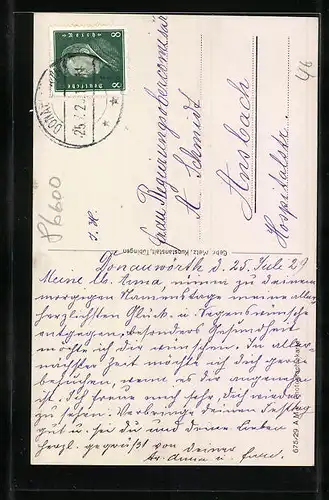 8 8
Deutsche
DONAU
25.7.2
Frau Regierungsobersekretär
A. Schmidt
Ansbach
Hospitalstr.
Gebr. Metz, Kunstanstalt, Tübingen
P6600
Donauwörth d. 25. Juli 29
Meine lb. Emma, nimm zu deinem
morgigen Namenstage meine aller-
herzlichsten Glück- u. Segenswünsche
entgegen, besonders Gesundheit
möchte ich dir wünschen. In aller-
nächster Zeit möchte ich dich gerne
besuchen, wenn es dir angenehm
ist. Ich freue mich sehr, dich wieder
zu sehen. Verbringe deinen Festtag
gut u. sei du und deine Lieben
herzl. gegrüßt von deiner
Anna u.